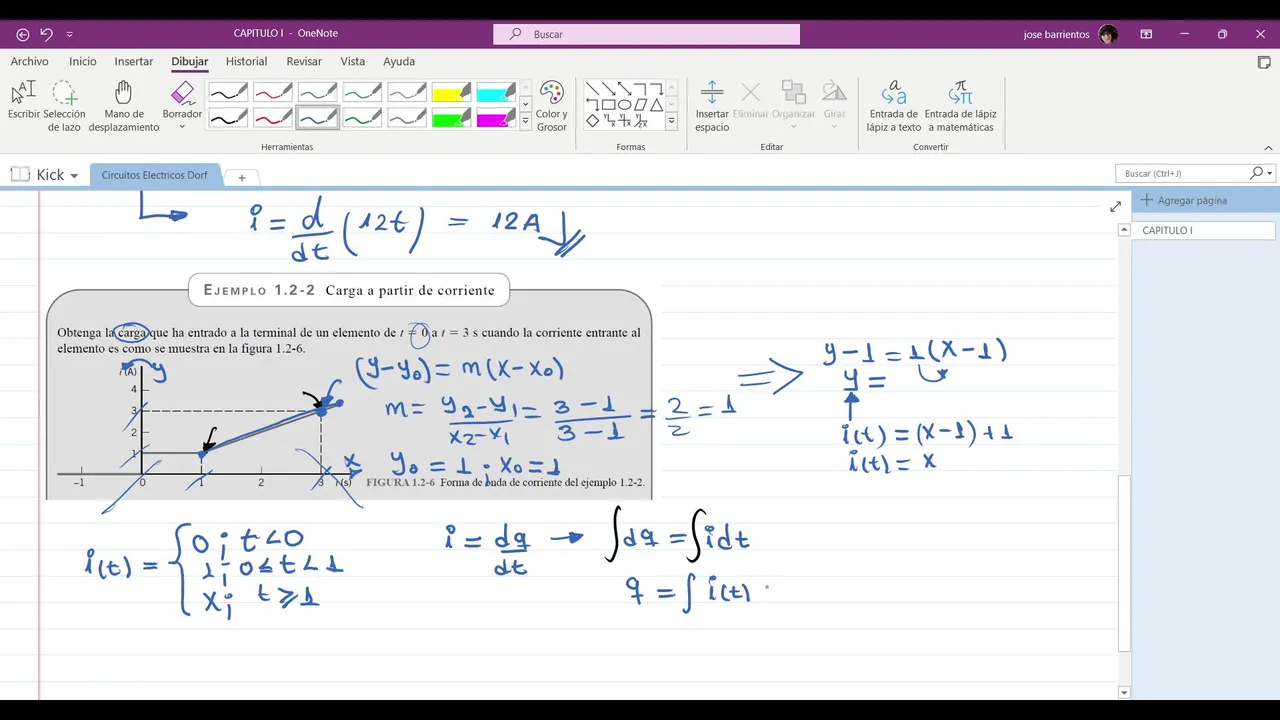 CAPITULO I - OneNote
Buscar
jose barrientos
Archivo Inicio Insertar Dibujar Historial Revisar Vista Ayuda
Escribir
Selección de lazo
Mano de desplazamiento
Borrador
Color y Grosor
Insertar espacio
Eliminar
Organizar
Girar
Entrada de lápiz a texto
Entrada de lápiz a matemáticas
Herramientas
Formas
Editar
Convertir
Kick
Circuitos Electricos Dorf
Buscar (Ctrl+J)
Agregar página
CAPITULO I
i = d/dt (12t) = 12A
EJEMPLO 1.2-2 Carga a partir de corriente
Obtenga la carga que ha entrado a la terminal de un elemento de t = 0 a t = 3 s cuando la corriente entrante al
elemento es como se muestra en la figura 1.2-6.
i (A) y
4
3
2
1
-1 0 1 2 3 t (s) x
(y-y0) = m(x-x0)
m = y2-y1/x2-x1 = 3-1/3-1 = 2/2 = 1
y0 = 1 ; x0 = 1
FIGURA 1.2-6 Forma de onda de corriente del ejemplo 1.2-2.
y-1 = 1(x-1)
y =
i(t) = (x-1)+1
i(t) = x
i(t) = { 0; t<0
1; 0≤t<1
x; t≥1
i = dq/dt → ∫dq = ∫idt
q = ∫ i(t)